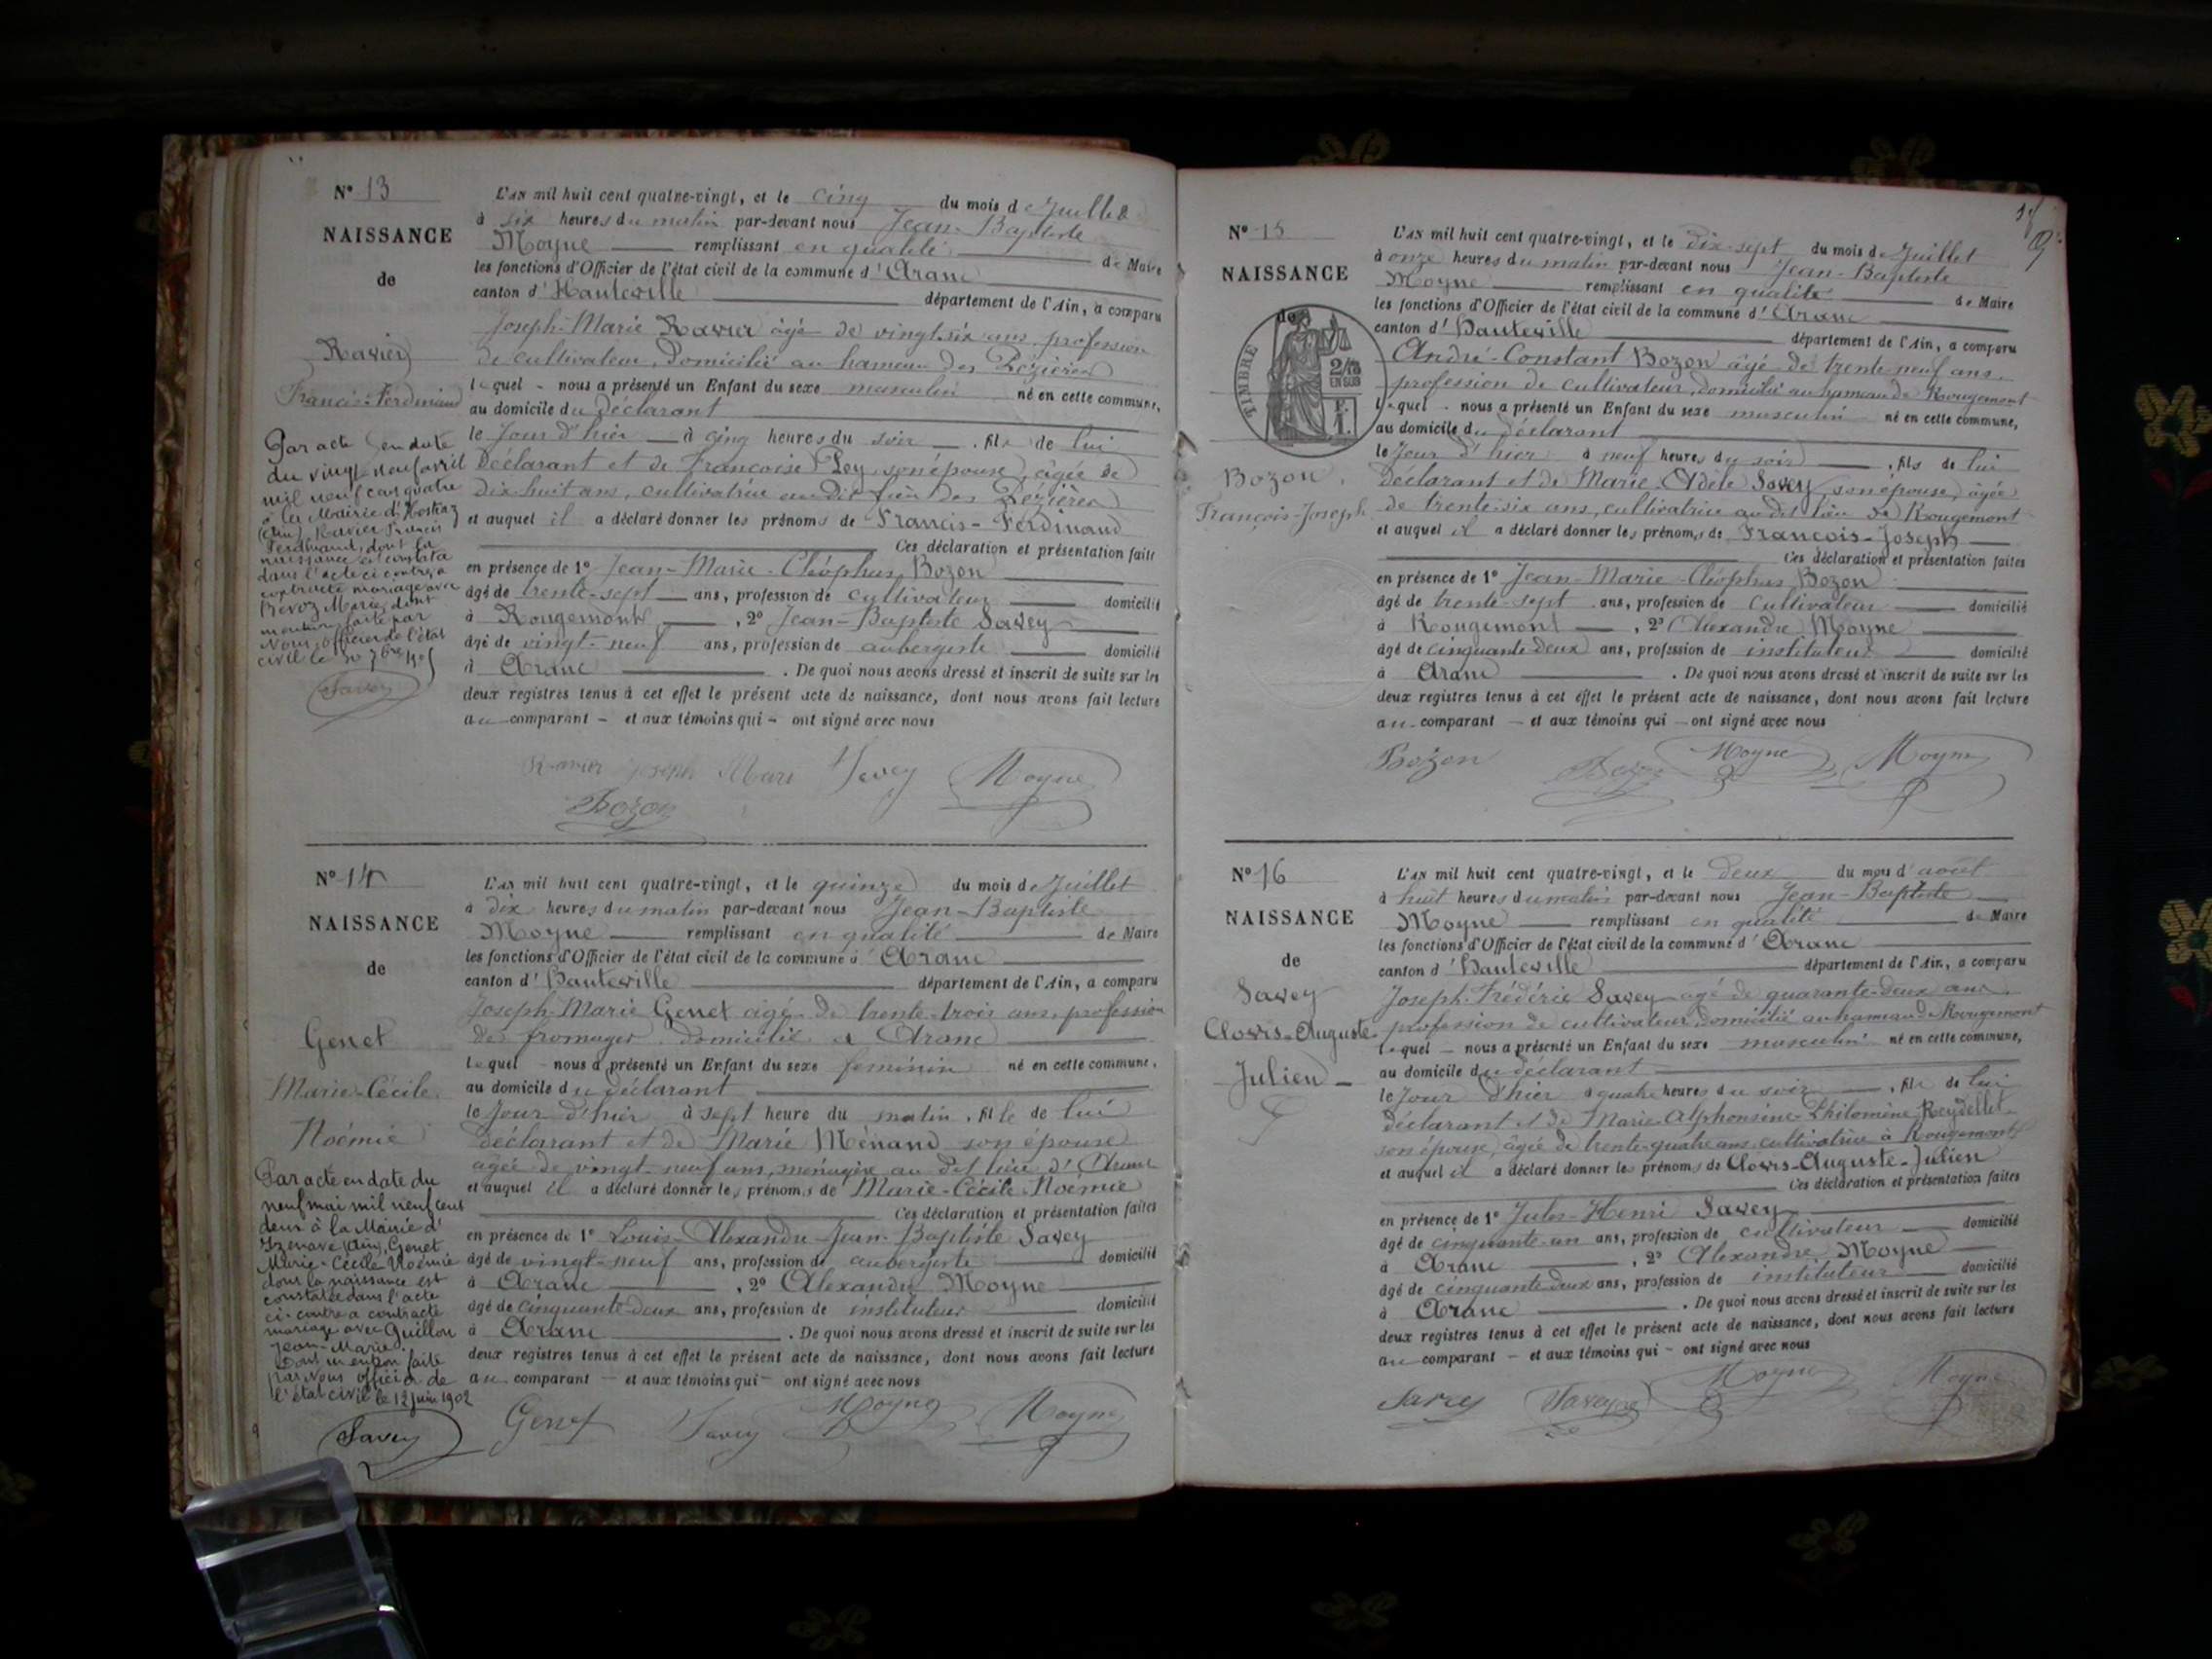 N° 13
NAISSANCE
de
Ravier
Francis-Ferdinand
Par acte en date
du vingt neuf avril
mil neuf cent quatre
à la Mairie d'Hostiaz
(Ain) Ravier Francis
Ferdinand, dont la
naissance est constatée
dans l'acte ci contre, a
contracté mariage avec
Marie, dont
mention faite par
Nous, officier de l'état
civil le 30 7bre
Savey
L'an mil huit cent quatre-vingt, et le cinq du mois de Juillet
à six heures du matin par-devant nous Jean-Baptiste
Moyne remplissant en qualité de Maire
les fonctions d'Officier de l'état civil de la commune d'Aranc
canton d'Hauteville département de l'Ain, a comparu
Joseph-Marie Ravier âgé de vingt-six ans, profession
de cultivateur, domicilié au hameau des Pézières
lequel - nous a présenté un Enfant du sexe masculin né en cette commune,
au domicile du déclarant
le Jour d'hier à cinq heures du soir, fils de lui
déclarant et de Françoise Ley, son épouse, âgée de
dix-huit ans, cultivatrice au dit lieu des Pézières
et auquel il a déclaré donner les prénoms de Francis-Ferdinand
Ces déclaration et présentation faites
en présence de 1° Jean-Marie-Cléophas Bozon
âgé de trente-sept ans, profession de cultivateur domicilié
à Rougemont, 2° Jean-Baptiste Savey
âgé de vingt-neuf ans, profession de aubergiste domicilié
à Aranc. De quoi nous avons dressé et inscrit de suite sur les
deux registres tenus à cet effet le présent acte de naissance, dont nous avons fait lecture
au comparant - et aux témoins qui - ont signé avec nous
Ravier Joseph Mari Savey Moyne
Bozon
N° 14
NAISSANCE
de
Genet
Marie-Cécile
Noémie
Par acte en date du
neuf mai mil neuf cent
deux à la Mairie d'
Izenave (Ain), Genet
Marie-Cécile Noémie
dont la naissance est
constatée dans l'acte
ci-contre a contracté
mariage avec Guillon
Jean-Marie.
Dont mention faite
par Nous officier de
l'état civil le 12 juin 1902
Savey
L'an mil huit cent quatre-vingt, et le quinze du mois de Juillet
à dix heures du matin par-devant nous Jean-Baptiste
Moyne remplissant en qualité de Maire
les fonctions d'Officier de l'état civil de la commune d'Aranc
canton d'Hauteville département de l'Ain, a comparu
Joseph-Marie Genet âgé de trente-trois ans, profession
de fromager domicilié à Aranc
lequel - nous a présenté un Enfant du sexe féminin né en cette commune,
au domicile du déclarant
le Jour d'hier à sept heure du matin, fille de lui
déclarant et de Marie Ménand son épouse
âgée de vingt-neuf ans, ménagère au dit lieu d'Aranc
et auquel il a déclaré donner les prénoms de Marie-Cécile-Noémie
Ces déclaration et présentation faites
en présence de 1° Louis-Alexandre-Jean-Baptiste Savey
âgé de vingt-neuf ans, profession de aubergiste domicilié
à Aranc, 2° Alexandre Moyne
âgé de cinquante-deux ans, profession de instituteur domicilié
à Aranc. De quoi nous avons dressé et inscrit de suite sur les
deux registres tenus à cet effet le présent acte de naissance, dont nous avons fait lecture
au comparant - et aux témoins qui - ont signé avec nous
Genet Savey Moyne Moyne
N° 15
NAISSANCE
de
TIMBRE
2/10
EN SUS
F.
1.
Bozon
François-Joseph
L'an mil huit cent quatre-vingt, et le dix-sept du mois de Juillet
à onze heures du matin par-devant nous Jean-Baptiste
Moyne remplissant en qualité de Maire
les fonctions d'Officier de l'état civil de la commune d'Aranc
canton d'Hauteville département de l'Ain, a comparu
André-Constant Bozon âgé de trente-neuf ans,
profession de cultivateur, domicilié au hameau de Rougemont
lequel - nous a présenté un Enfant du sexe masculin né en cette commune,
au domicile du déclarant
le Jour d'hier à neuf heures du soir, fils de lui
déclarant et de Marie-Adèle Savey, son épouse, âgée
de trente-six ans, cultivatrice au dit lieu de Rougemont
et auquel il a déclaré donner les prénoms de François-Joseph
Ces déclaration et présentation faites
en présence de 1° Jean-Marie-Cléophas Bozon
âgé de trente-sept ans, profession de cultivateur domicilié
à Rougemont, 2° Alexandre Moyne
âgé de cinquante-deux ans, profession de instituteur domicilié
à Aranc. De quoi nous avons dressé et inscrit de suite sur les
deux registres tenus à cet effet le présent acte de naissance, dont nous avons fait lecture
au comparant - et aux témoins qui - ont signé avec nous
Bozon Bozon Moyne Moyne
N° 16
NAISSANCE
de
Savey
Clovis-Auguste-
Julien
L'an mil huit cent quatre-vingt, et le deux du mois d'août
à huit heures du matin par-devant nous Jean-Baptiste
Moyne remplissant en qualité de Maire
les fonctions d'Officier de l'état civil de la commune d'Aranc
canton d'Hauteville département de l'Ain, a comparu
Joseph-Frédéric Savey âgé de quarante-deux ans,
profession de cultivateur, domicilié au hameau de Rougemont
lequel - nous a présenté un Enfant du sexe masculin né en cette commune,
au domicile du déclarant
le Jour d'hier à quatre heures du soir, fils de lui
déclarant et de Marie-Alphonsine-Philomène Reydellet
son épouse, âgée de trente-quatre ans, cultivatrice à Rougemont
et auquel il a déclaré donner les prénoms de Clovis-Auguste-Julien
Ces déclaration et présentation faites
en présence de 1° Jules-Henri Savey
âgé de cinquante-un ans, profession de cultivateur domicilié
à Aranc, 2° Alexandre Moyne
âgé de cinquante-deux ans, profession de instituteur domicilié
à Aranc. De quoi nous avons dressé et inscrit de suite sur les
deux registres tenus à cet effet le présent acte de naissance, dont nous avons fait lecture
au comparant - et aux témoins qui - ont signé avec nous
Savey Savey Moyne Moyne